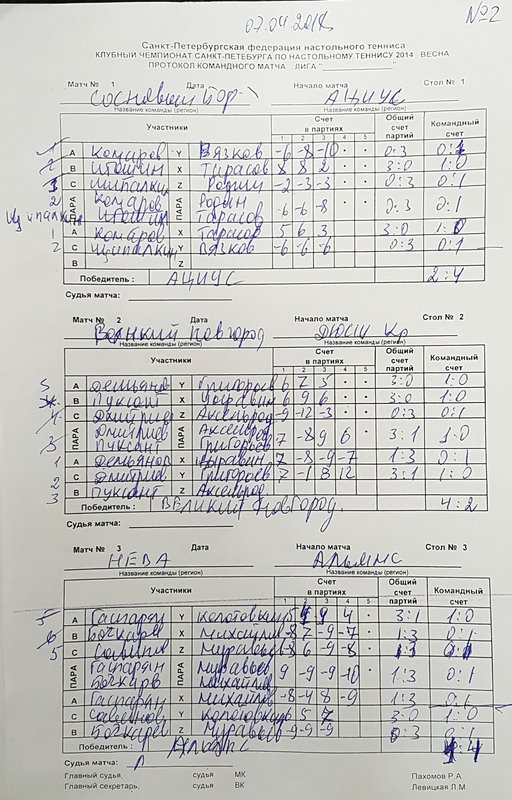 07.04.2014 №2
Санкт-Петербургская федерация настольного тенниса
КЛУБНЫЙ ЧЕМПИОНАТ САНКТ-ПЕТЕБУРГА ПО НАСТОЛЬНОМУ ТЕННИСУ 2014 ВЕСНА
ПРОТОКОЛ КОМАНДНОГО МАТЧА ЛИГА "____________"
Матч № 1 Дата Начало матча Стол № 1
Сосновый Бор АЦИУС
Название команды (регион) Название команды (регион)
Участники Счет в партиях Общий счет партий Командный счет
1 2 3 4 5
A Комаров Y Вязков -6 -8 -10 0:3 0:1
B Итошин X Тарасов 8 8 2 3:0 1:0
C Z Родин -2 -3 -3 0:3 0:1
ПАРА Комаров Итошин ПАРА Родин Тарасов -6 -6 -8 0:3 0:1
A Комаров X Тарасов 5 6 3 3:0 1:0
C Y Вязков -6 -6 -6 0:3 0:1
B Z
Победитель : АЦИУС 2:4
Судья матча:
Матч № 2 Дата Начало матча Стол № 2
Великий Новгород ДЮСШ Кр
Название команды (регион) Название команды (регион)
Участники Счет в партиях Общий счет партий Командный счет
1 2 3 4 5
A Демьянов Y Григорьев 6 7 3 3:0 1:0
B Пуксант X 6 9 6 3:0 1:0
C Дмитриев Z Аксельрод -9 -12 -3 0:3 0:1
ПАРА Дмитриев Пуксант ПАРА Аксельрод Григорьев 7 -8 9 6 3:1 1:0
A Демьянов X 7 -8 -9 -7 1:3 0:1
C Дмитриев Y Григорьев 7 -1 8 12 3:1 1:0
B Пуксант Z Аксельрод
Победитель : ВЕЛИКИЙ Новгород. 4:2
Судья матча:
Матч № 3 Дата Начало матча Стол № 3
НЕВА Альянс
Название команды (регион) Название команды (регион)
Участники Счет в партиях Общий счет партий Командный счет
1 2 3 4 5
A Гаспарян Y 4 3:1 1:0
B Бочкарев X Михайлов -8 7 -9 -7 1:3 0:1
C Z Муравьев -8 6 -9 -8 1:3 0:1
ПАРА Гаспарян Бочкарев ПАРА Муравьев Михайлов 9 -9 -9 -10 1:3 0:1
A Гаспарян X Михайлов -8 -4 8 -9 1:3 0:1
C Y 5 7 3:0 1:0
B Бочкарев Z Муравьев -9 -9 -9 0:3 0:1
Победитель : Альянс
Судья матча:
Главный судья, судья МК Пахомов Р.А.
Главный секретарь, судья ВК Левицкая Л.М